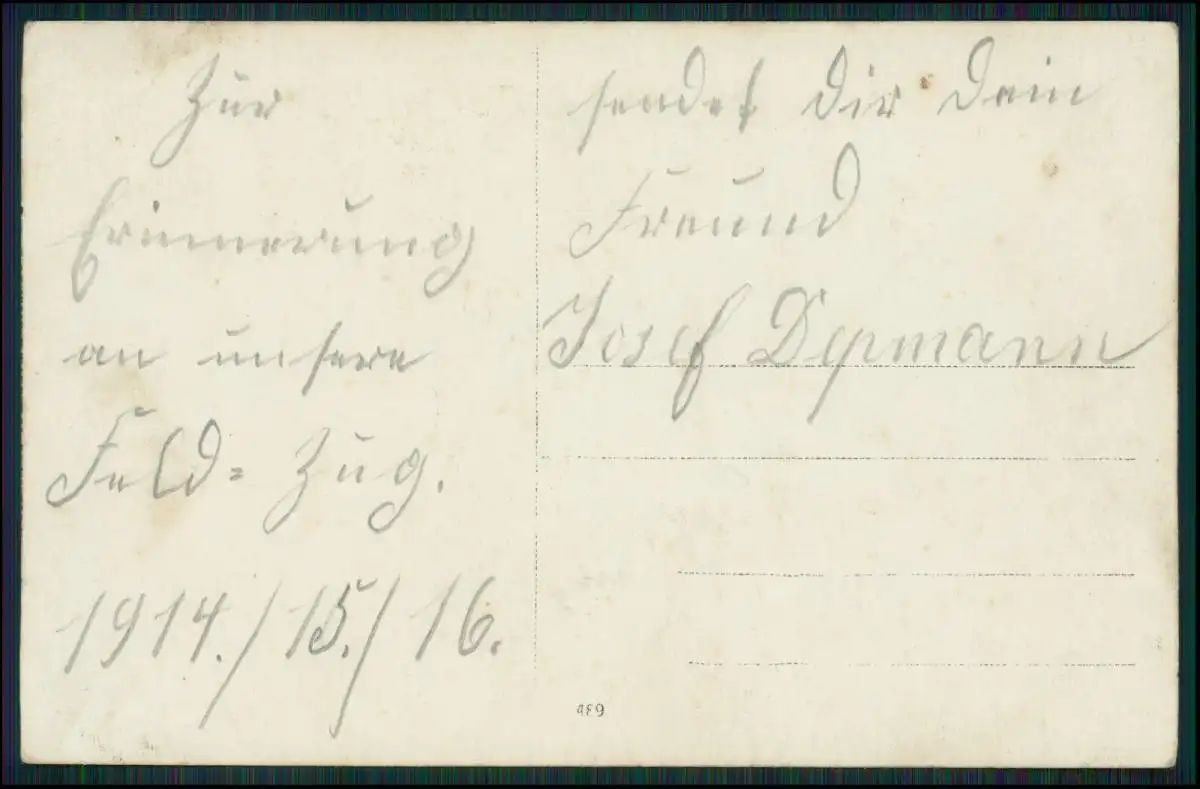 Zur
Erinnerung
an unsere
Feld= Zug.
1914./15./16.
sendet Dir Dein
Freund
Josef Depmann
489